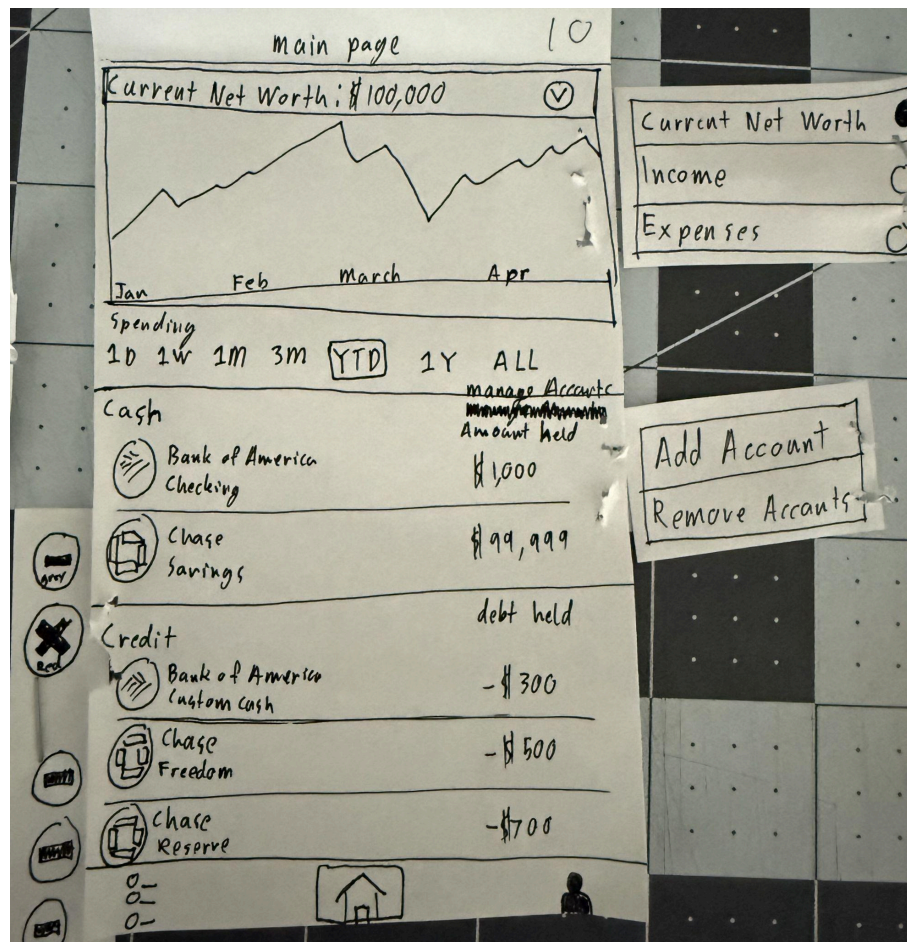 main page
10
Current Net Worth: $100,000
Jan Feb March Apr
Spending
1D 1W 1M 3M YTD 1Y ALL
manage Accounts
Cash
Amount held
Bank of America
Checking
$1,000
Chase
Savings
$99,999
Credit
debt held
Bank of America
Custom Cash
-$300
Chase
Freedom
-$500
Chase
Reserve
-$700
Current Net Worth
Income
Expenses
Add Account
Remove Accounts
grey
Red